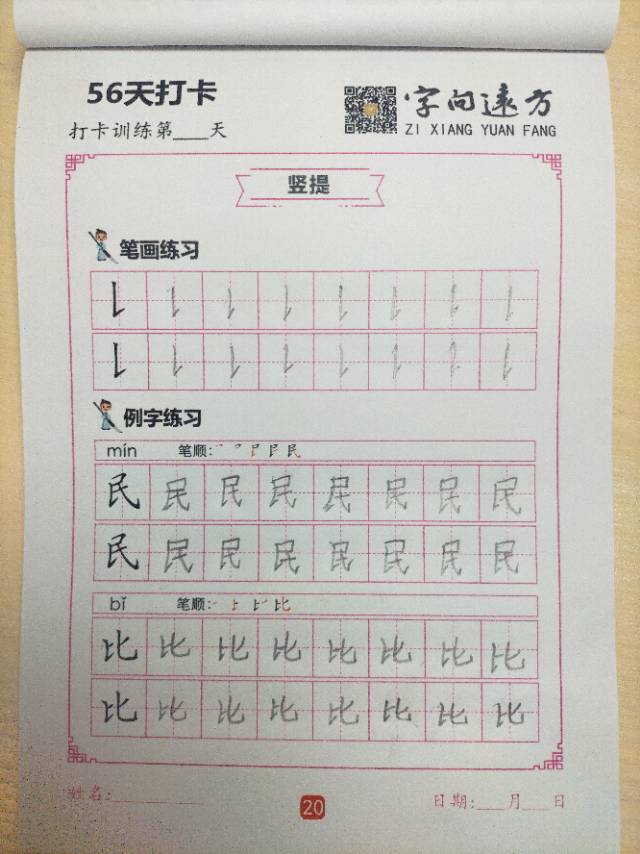 56天打卡
字向速方
打卡训练第___天
ZI XIANG YUAN FANG
竖提
笔画练习
例字练习
mín 笔顺:
民 民 民 民 民 民 民 民
民 民 民 民 民 民 民 民
bǐ 笔顺: 比
比 比 比 比 比 比 比 比
比 比 比 比 比 比 比 比
姓名:
20
日期:___月___日